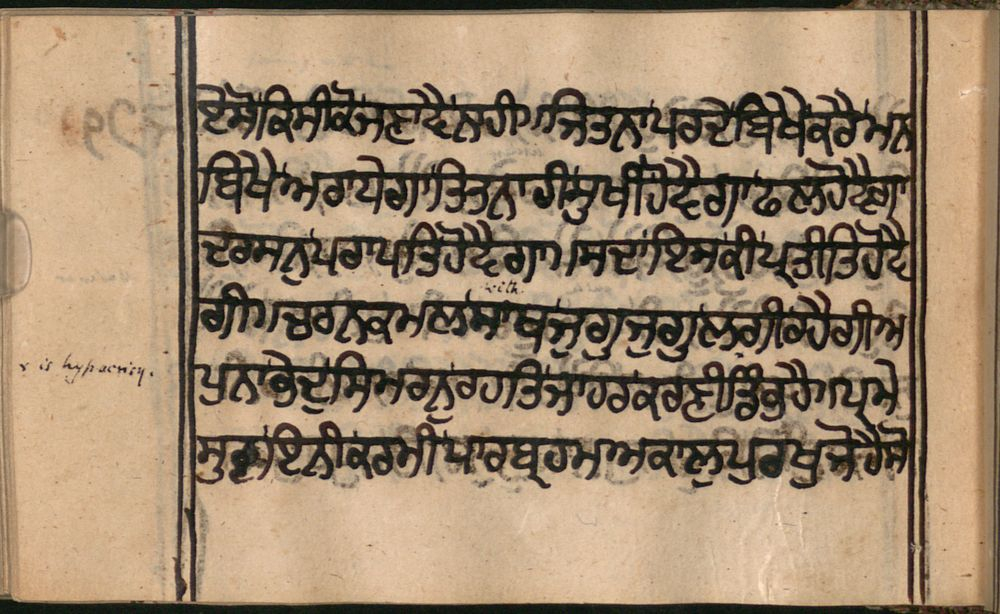 ਏਸੋ ਕਿਸੀ ਕੋ ਜਣਾਦੈ ਨਹੀ ॥ ਜਿਤਨਾ ਪਰਦੇ ਬਿਖੈ ਕਰੈ ਮਨ
ਬਿਖੈ ਅਰਾਧੇਗਾ ਤਿਤਨਾ ਹੀ ਸੁਖੀ ਹੋਵੈਗਾ ਫਲ ਹੋਵੈਗਾ
ਦਰਸਨ ਪਰਾਪਤਿ ਹੋਵੈਗਾ ॥ ਸਦਾ ਇਸ ਕੀ ਪ੍ਰੀਤਿ ਹੋਵੈ
with
ਗੀ ॥ ਚਰਨ ਕਮਲ ਸਾਥ ਜੁਗੁ ਜੁਗੁ ਲਗੀ ਰਹੈਗੀ ਅ
is hypocrisy.
ਪੁਨਾ ਭੇਦੁ ਸਿਮਰਨੁ ਰਹਤਿ ਜਾਹਰ ਕਰਣੀ ਡਿੰਭੁ ਹੈ ॥ ਪ੍ਰਮੇ
ਸੁਰ ਇਨੀ ਕਰਮੀ ਪਾਰਬ੍ਰਹਮ ਅਕਾਲ ਪੁਰਖੁ ਜੋ ਹੈ ਸੋ